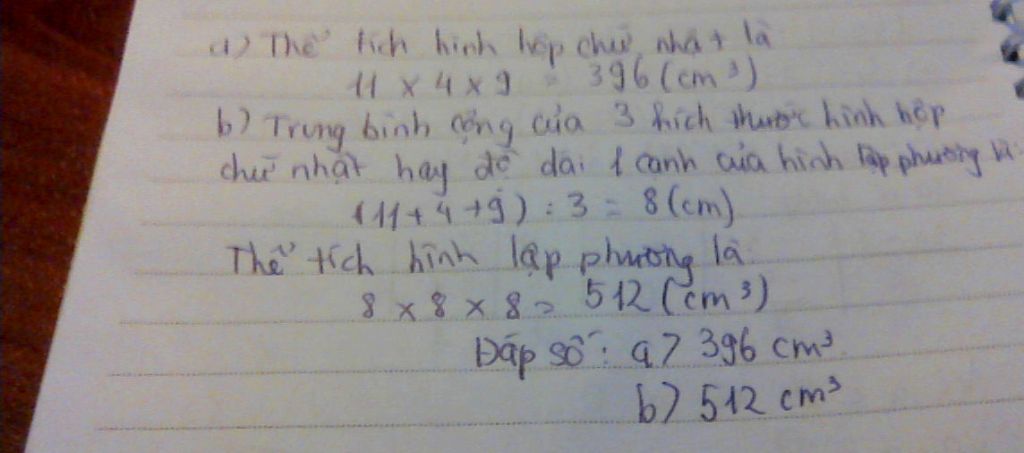 a) Thể tích hình hộp chữ nhật là
11 x 4 x 9 = 396 (cm³)
b) Trung bình cộng của 3 kích thước hình hộp
chữ nhật hay độ dài 1 cạnh của hình lập phương là:
(11 + 4 + 9) : 3 = 8 (cm)
Thể tích hình lập phương là
8 x 8 x 8 = 512 (cm³)
Đáp số: a) 396 cm³
b) 512 cm³